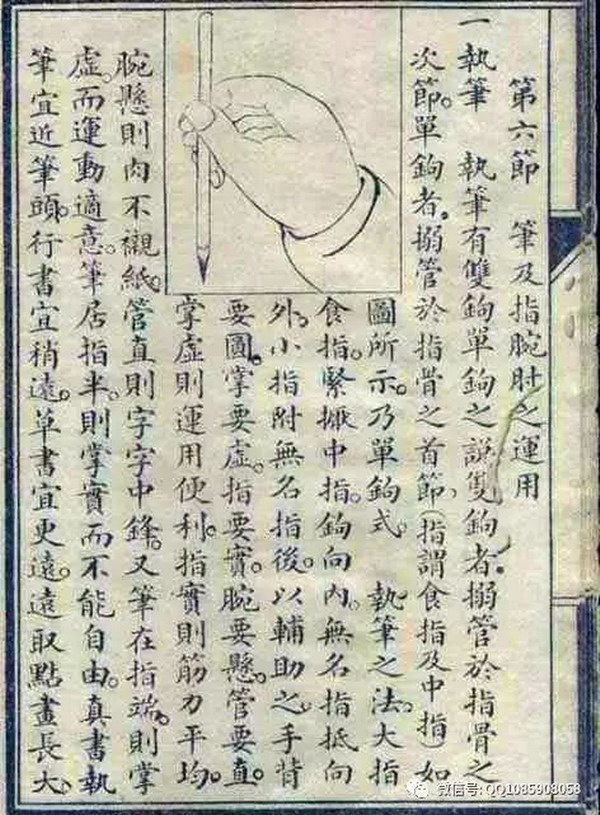 第六節　筆及指腕肘之運用
一執筆　執筆有雙鉤單鉤之說雙鉤者。搦管於指骨之
次節。單鉤者。搦管於指骨之首節、(指謂食指及中指)如
圖所示。乃單鉤式。　執筆之法。大指
食指。緊擫中指。鉤向內。無名指抵向
外。小指附無名指後。以輔助之。手背
要圓。掌要虛。指要實。腕要懸。管要直。
掌虛則運用便利。指實則筋力平均。
腕懸則肉不襯紙。管直則字字中鋒。又筆在指端。則掌
虛。而運動適意。筆居指半。則掌實而不能自由。真書執
筆宜近筆頭。行書宜稍遠。草書宜更遠。遠取點畫長大。
微信号: QQ1085908058